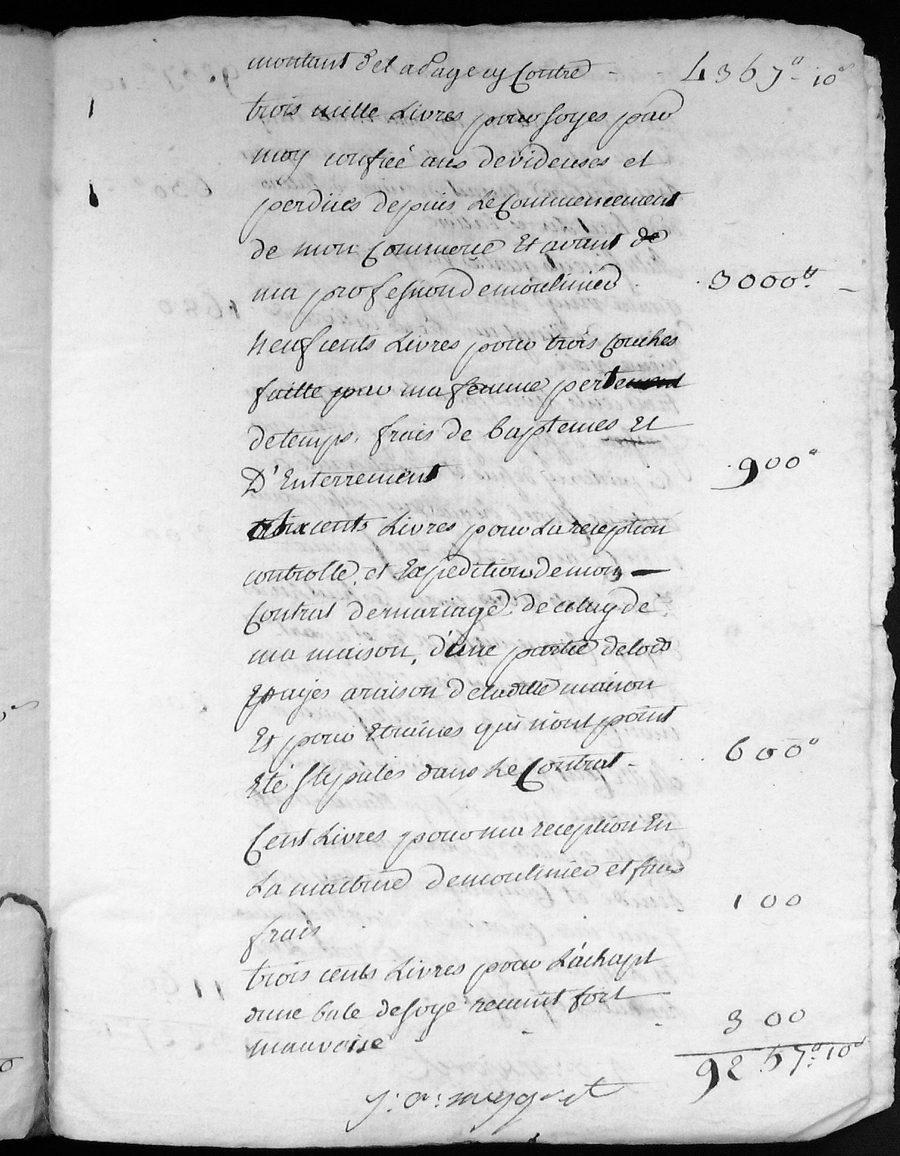 montant de la Page cy Contre - 4367ᵗᵗ 10ˢ
trois mille Livres pour soyes par
moy confiée aux devideuses et
perdües depuis le Commencement
de mon Commerce Et avant de
ma profession de moulinier 3000ᵗᵗ
neufcents Livres pour trois Couches
faitte par ma femme perte
de temps, frais de baptemes Et
D'Enterrement 900ᵗᵗ
six cents Livres pour La reception
controlle, et Expedition de mon
Contrat de mariage, de celuy de
ma maison, d'une partie de lods
payés a raison de maison
Et pour Etraines qui n'ont point
Eté stipules dans Le Contrat - 600ᵗᵗ
Cent Livres pour ma reception En
La maitrise de moulinier et faux
frais 100
trois cents Livres pour L'achapt
d'une bale de soye fort
mauvoise 300
9267ᵗᵗ 10ˢ